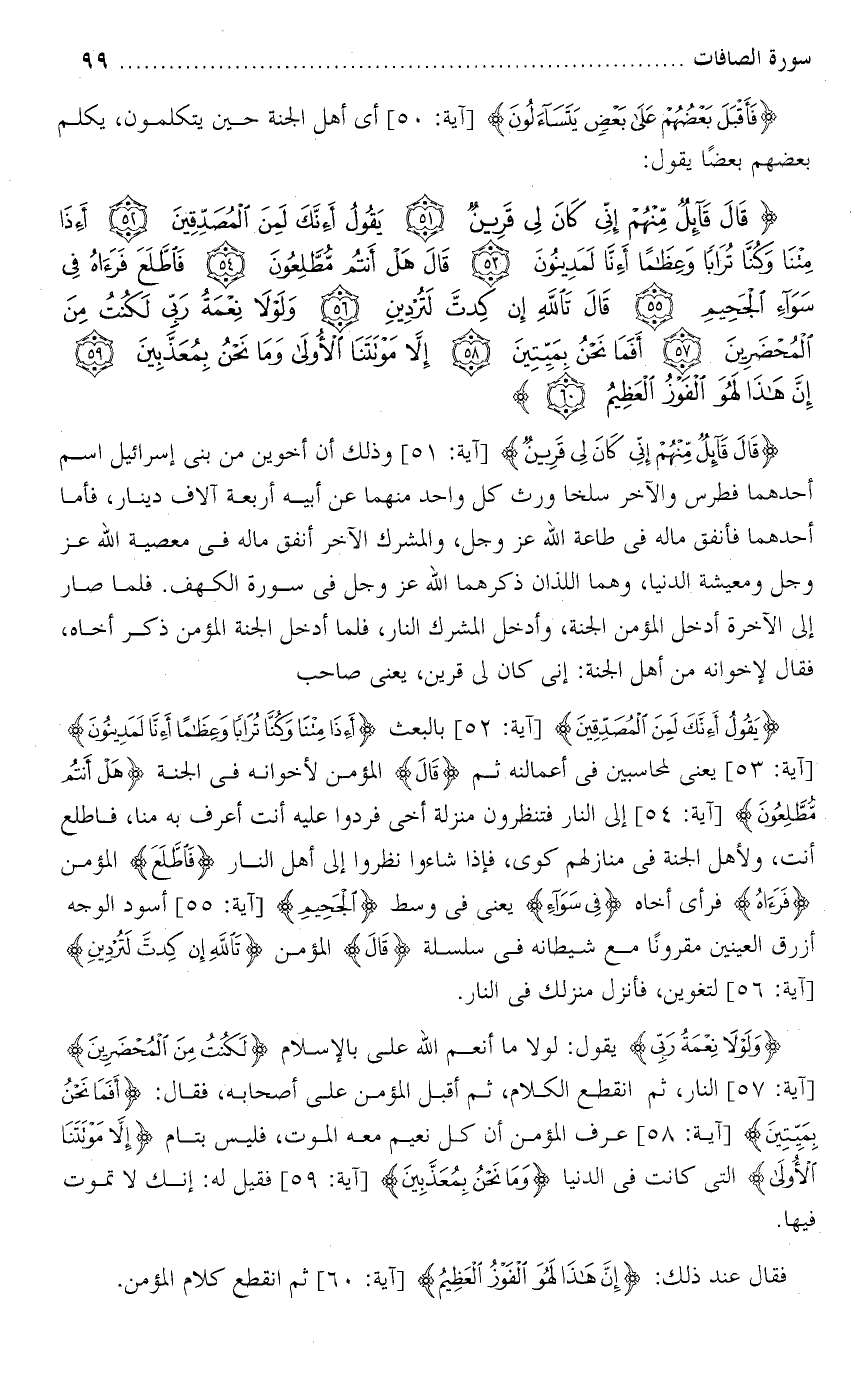 سورة الصافات .................................................................. ٩٩
﴿فَأَقْبَلَ بَعْضُهُمْ عَلَىٰ بَعْضٍ يَتَسَآءَلُونَ﴾ [آية: ٥٠] أى أهل الجنة حين يتكلمون، يكلم
بعضهم بعضًا يقول:
﴿ قَالَ قَآئِلٌ مِّنْهُمْ إِنِّى كَانَ لِى قَرِينٌ ٥١ يَقُولُ أَءِنَّكَ لَمِنَ ٱلْمُصَدِّقِينَ ٥٢ أَءِذَا
مِتْنَا وَكُنَّا تُرَابًا وَعِظَٰمًا أَءِنَّا لَمَدِينُونَ ٥٣ قَالَ هَلْ أَنتُم مُّطَّلِعُونَ ٥٤ فَٱطَّلَعَ فَرَءَاهُ فِى
سَوَآءِ ٱلْجَحِيمِ ٥٥ قَالَ تَٱللَّهِ إِن كِدتَّ لَتُرْدِينِ ٥٦ وَلَوْلَا نِعْمَةُ رَبِّى لَكُنتُ مِنَ
ٱلْمُحْضَرِينَ ٥٧ أَفَمَا نَحْنُ بِمَيِّتِينَ ٥٨ إِلَّا مَوْتَتَنَا ٱلْأُولَىٰ وَمَا نَحْنُ بِمُعَذَّبِينَ ٥٩
إِنَّ هَٰذَا لَهُوَ ٱلْفَوْزُ ٱلْعَظِيمُ ٦٠ ﴾
﴿قَالَ قَآئِلٌ مِّنْهُمْ إِنِّى كَانَ لِى قَرِينٌ﴾ [آية: ٥١] وذلك أن أخوين من بنى إسرائيل اسم
أحدهما فطرس والآخر سلخا ورث كل واحد منهما عن أبيه أربعة آلاف دينار، فأما
أحدهما فأنفق ماله فى طاعة الله عز وجل، والمشرك الآخر أنفق ماله فى معصية الله عز
وجل ومعيشة الدنيا، وهما اللذان ذكرهما الله عز وجل فى سورة الكهف. فلما صار
إلى الآخرة أدخل المؤمن الجنة، وأدخل المشرك النار، فلما أدخل الجنة المؤمن ذكر أخاه،
فقال لإخوانه من أهل الجنة: إنى كان لى قرين، يعنى صاحب
﴿يَقُولُ أَءِنَّكَ لَمِنَ ٱلْمُصَدِّقِينَ﴾ [آية: ٥٢] بالبعث ﴿أَءِذَا مِتْنَا وَكُنَّا تُرَابًا وَعِظَٰمًا أَءِنَّا لَمَدِينُونَ﴾
[آية: ٥٣] يعنى لمحاسبين فى أعمالنه ثم ﴿قَالَ﴾ المؤمن لأخوانه فى الجنة ﴿هَلْ أَنتُم
مُّطَّلِعُونَ﴾ [آية: ٥٤] إلى النار فتنظرون منزلة أخى فردوا عليه أنت أعرف به منا، فاطلع
أنت، ولأهل الجنة فى منازلهم كوى، فإذا شاءوا نظروا إلى أهل النار ﴿فَٱطَّلَعَ﴾ المؤمن
﴿فَرَءَاهُ﴾ فرأى أخاه ﴿فِى سَوَآءِ﴾ يعنى فى وسط ﴿ٱلْجَحِيمِ﴾ [آية: ٥٥] أسود الوجه
أزرق العينين مقرونًا مع شيطانه فى سلسلة ﴿قَالَ﴾ المؤمن ﴿تَٱللَّهِ إِن كِدتَّ لَتُرْدِينِ﴾
[آية: ٥٦] لتغوين، فأنزل منزلك فى النار.
﴿وَلَوْلَا نِعْمَةُ رَبِّى﴾ يقول: لولا ما أنعم الله على بالإسلام ﴿لَكُنتُ مِنَ ٱلْمُحْضَرِينَ﴾
[آية: ٥٧] النار، ثم انقطع الكلام، ثم أقبل المؤمن على أصحابه، فقال: ﴿أَفَمَا نَحْنُ
بِمَيِّتِينَ﴾ [آية: ٥٨] عرف المؤمن أن كل نعيم معه الموت، فليس بتام ﴿إِلَّا مَوْتَتَنَا
ٱلْأُولَىٰ﴾ التى كانت فى الدنيا ﴿وَمَا نَحْنُ بِمُعَذَّبِينَ﴾ [آية: ٥٩] فقيل له: إنك لا تموت
فيها.
فقال عند ذلك: ﴿إِنَّ هَٰذَا لَهُوَ ٱلْفَوْزُ ٱلْعَظِيمُ﴾ [آية: ٦٠] ثم انقطع كلام المؤمن.